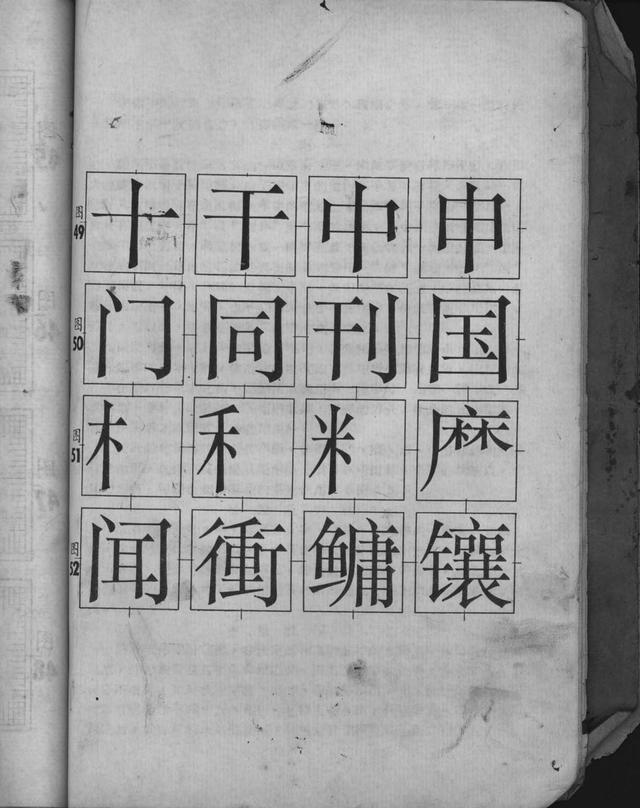 图49 十 干 中 申
图50 门 同 刊 国
图51 木 禾 米 麻
图52 闻 衝 鳙 镶